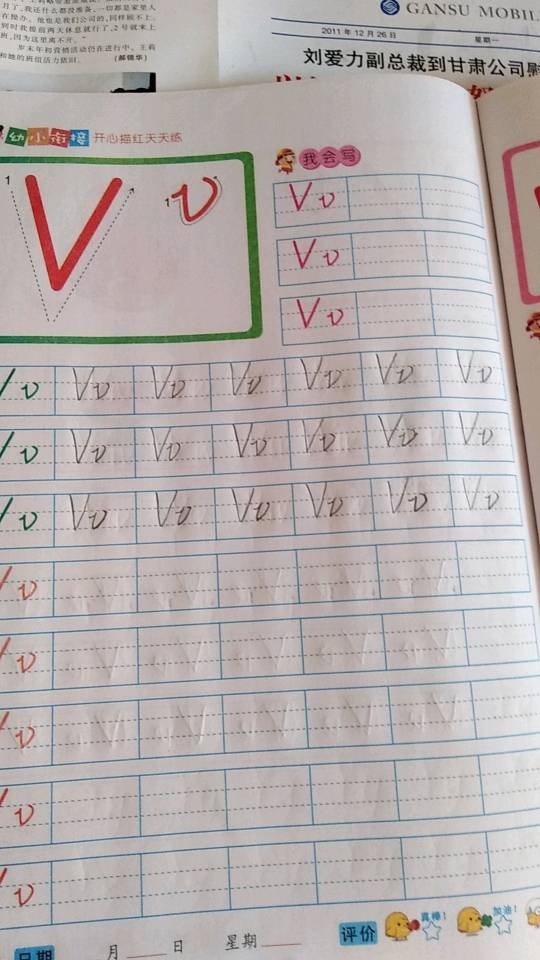 月了，我还什么都没准备。一切都是家里人
在操办，他也是我们公司的，同样顾不上。
到时我提前两天休息就行了，2号就来上
班，因为这里离不开。”
岁末年初营销活动仍在进行中，王莉
和她的班组活力依旧。
（郝锦华）
GANSU MOBIL
2011 年 12 月 26 日
星期一
刘爱力副总裁到甘肃公司慰
幼小衔接 开心描红天天练
我会写
1 V 1 v
V v
V v
V v
V v V v V v V v V v V v V v
V v V v V v V v V v V v V v
V v V v V v V v V v V v V v
V v
V v
V v
V v
V v
日期 月 日 星期 评价 真棒！ 加油！